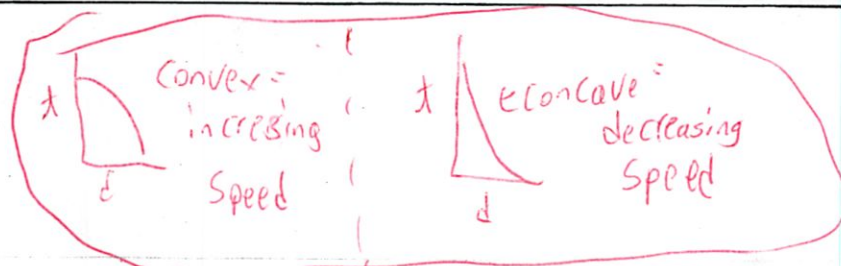 Convex =
t
incresing
Speed
d
t
concave =
decreasing
Speed
d